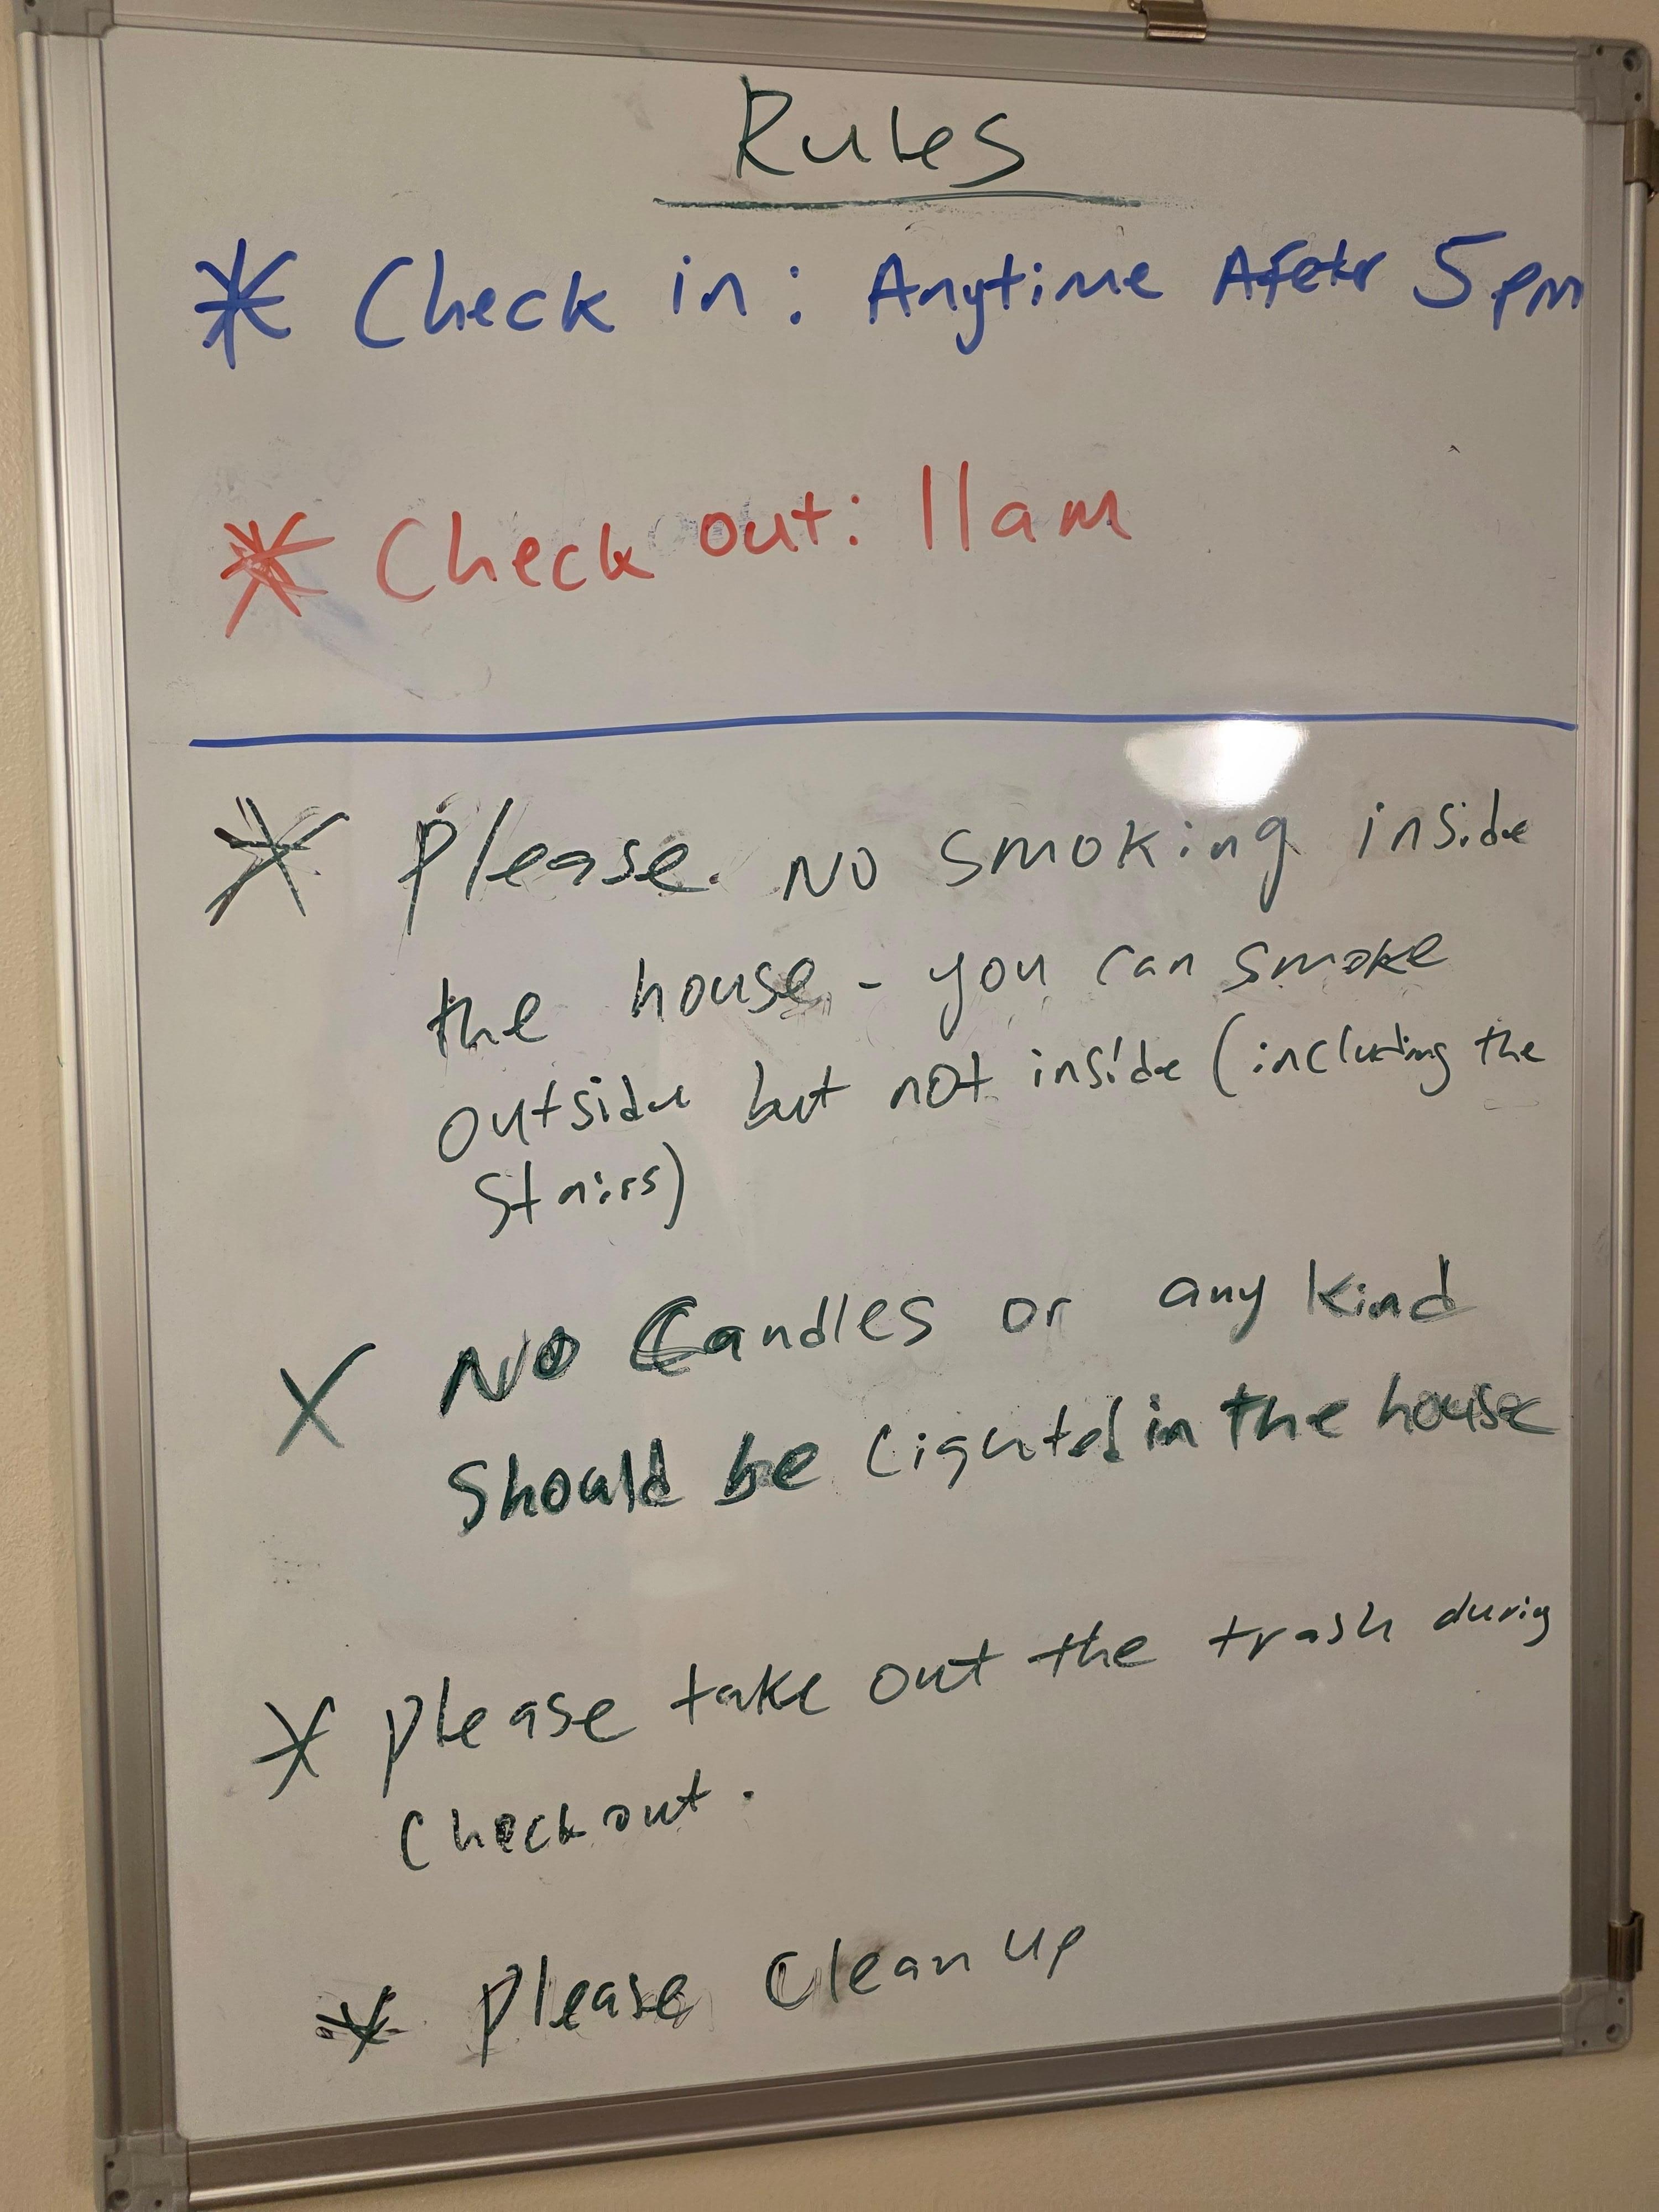 Rules
* Check in: Anytime After 5pm
* Check out: 11am
* Please. NO smoking inside
the house - you can smoke
outside but not inside (including the
stairs)
X NO Candles or any kind
Should be Lighted in the house
* please take out the trash during
Checkout.
* please Clean up